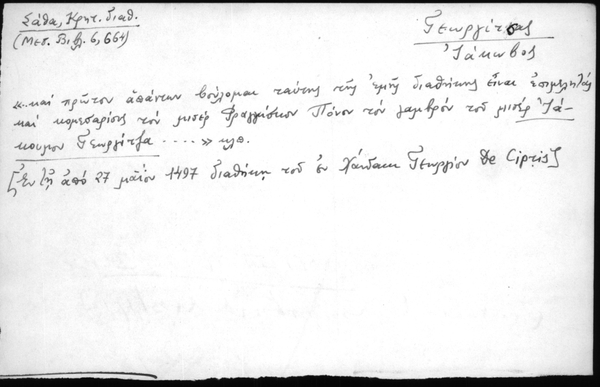 Σάθα, Κρητ. διαθ.
(Μεσ. Βιβλ. 6, 664)
Γεωργίτσας
Ἰάκωβος
«..καὶ πρῶτον ἁπάντων βούλομαι ταύτης τῆς ἐμῆς διαθήκης εἶναι ἐπιμελητάς
καὶ κομεσαρίους τὸν μισὲρ Φραγγίσκον Πόνον τὸν γαμβρόν τοῦ μισὲρ Ἰά-
κουμου Γεωργίτζα .....» κλπ.
[Ἐν τῇ ἀπό 27 μαΐου 1497 διαθήκῃ τοῦ ἐν Χάνδακι Γεωργίου De Cipris]